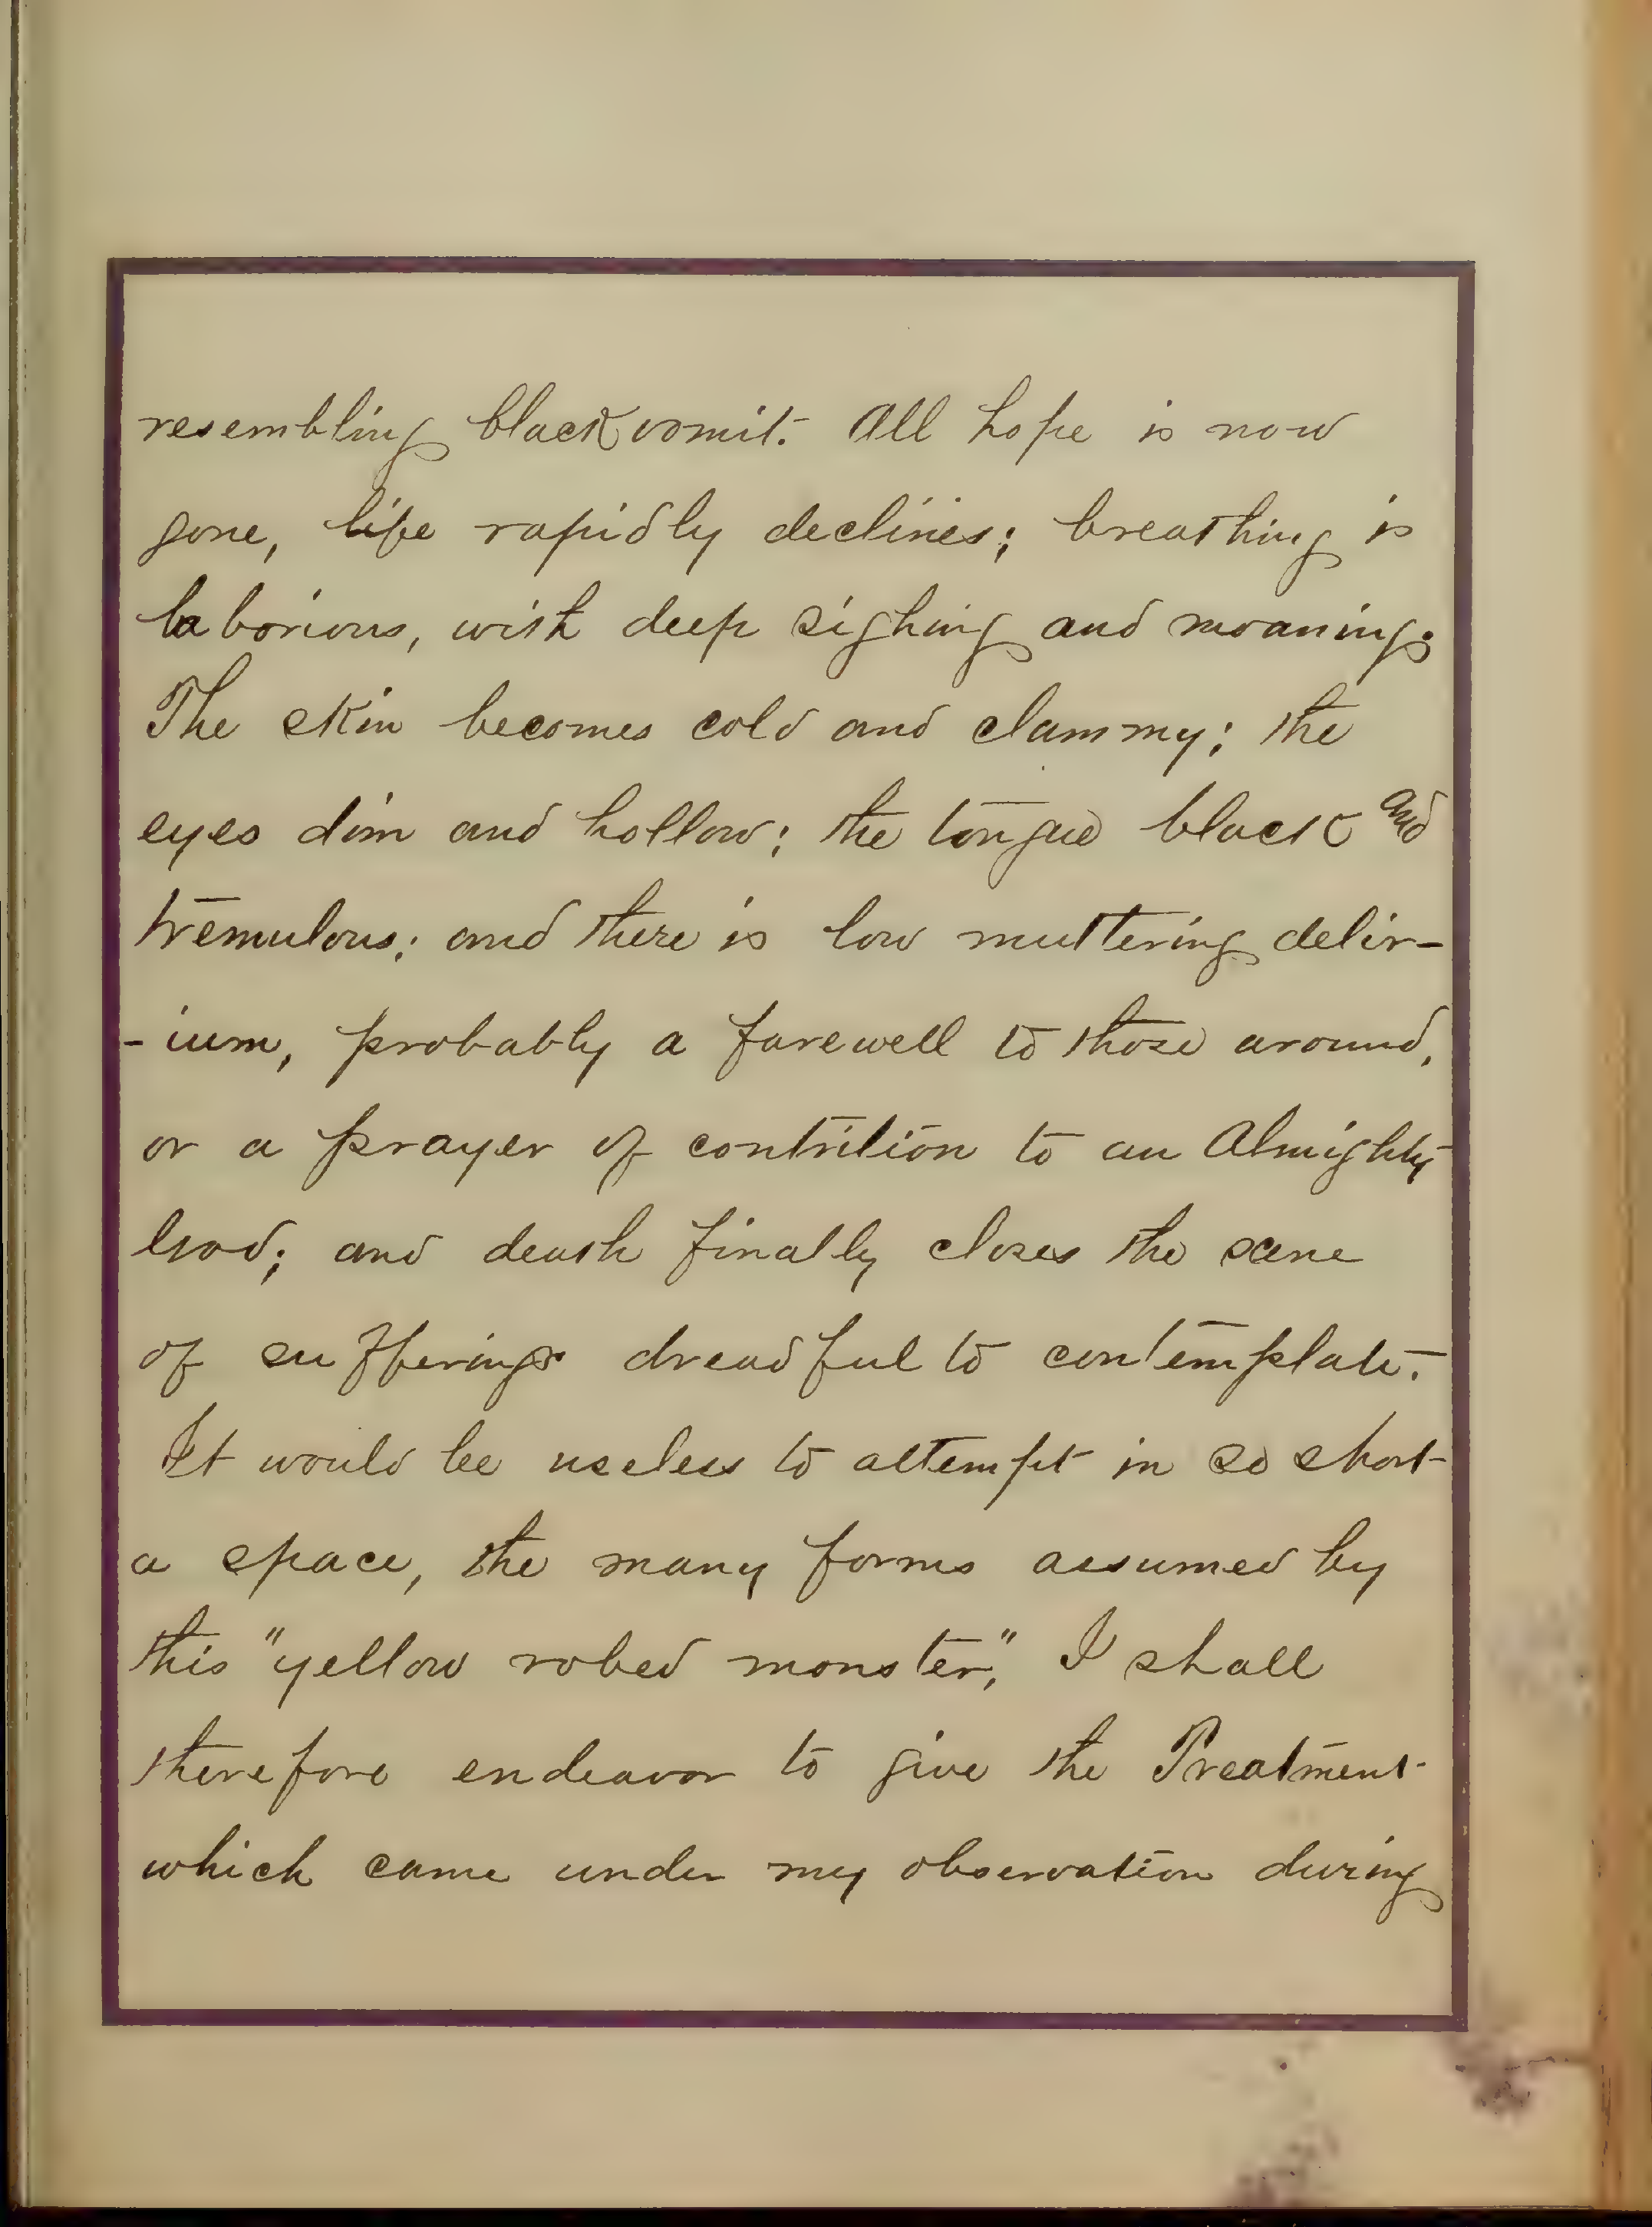 resembling black vomit. All hope is now
gone, life rapidly declines; breathing is
laborious, with deep sighing and moaning;
The skin becomes cold and clammy; the
eyes dim and hollow; the tongue black and
tremulous; and there is low muttering delir-
-ium, probably a farewell to those around,
or a prayer of contrition to an Almighty
God; and death finally closes the scene
of sufferings dreadful to contemplate.
It would be useless to attempt in so short
a space, the many forms assumed by
this "yellow robed monster," I shall
therefore endeavor to give the Treatment
which came under my observation during